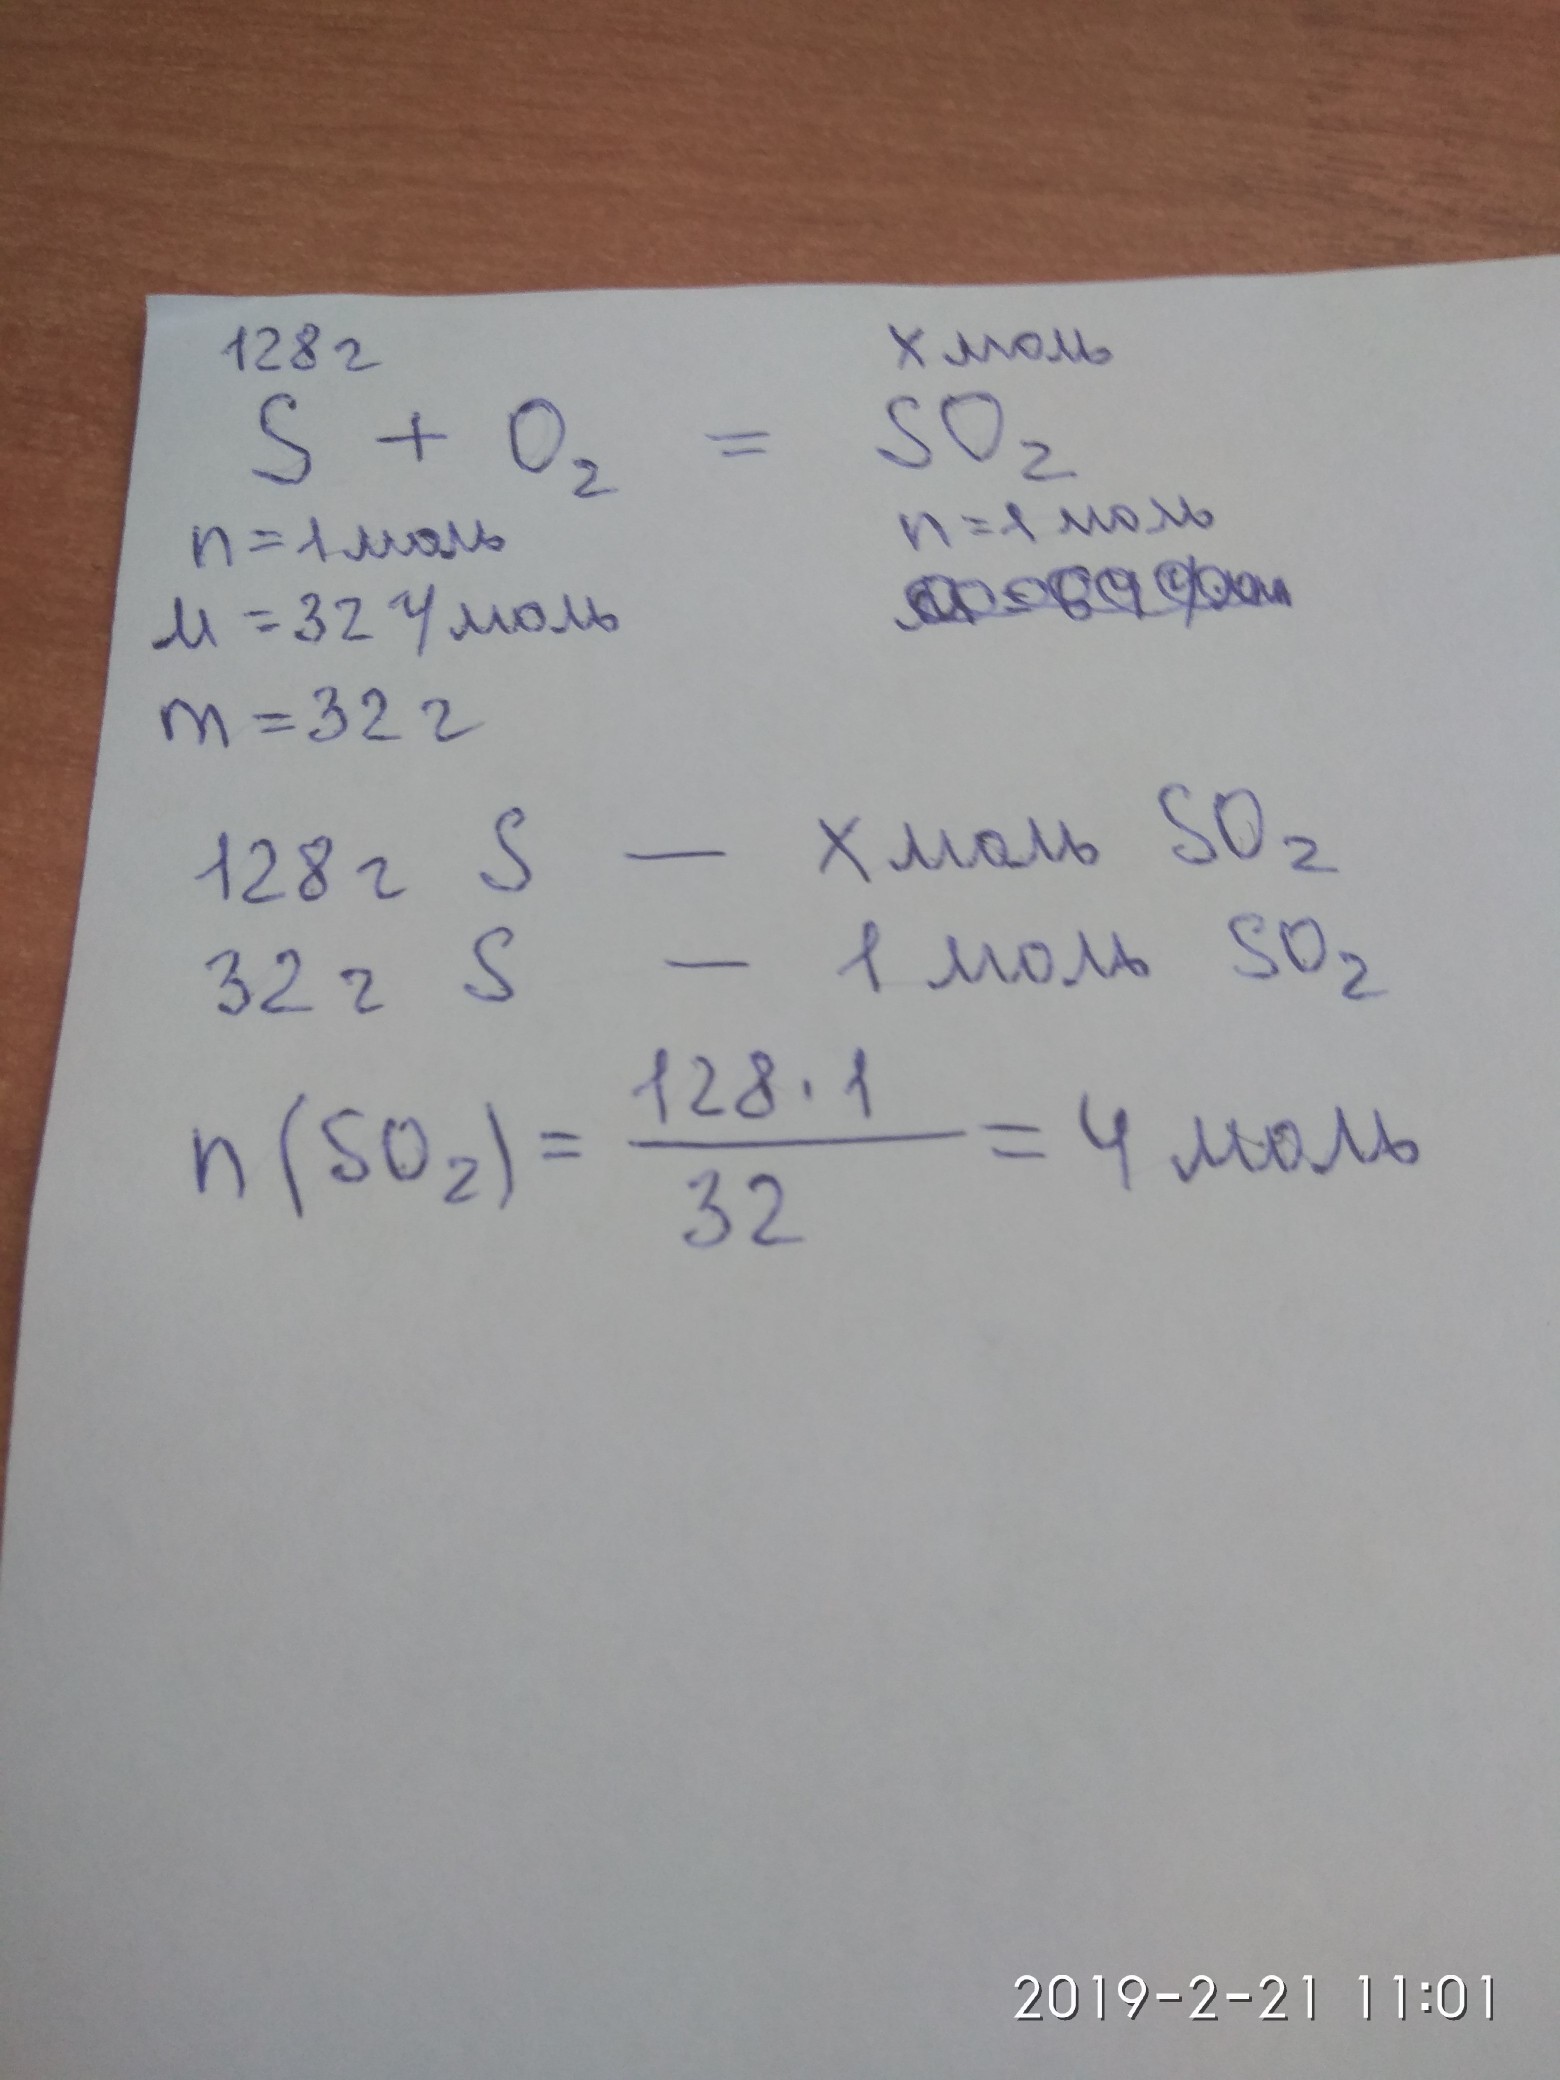 128 г х моль
S + O₂ = SO₂
n = 1 моль n = 1 моль
M = 32 г/моль
m = 32 г
128 г S — х моль SO₂
32 г S — 1 моль SO₂
n (SO₂) = 128 · 1 / 32 = 4 моль
2019-2-21 11:01